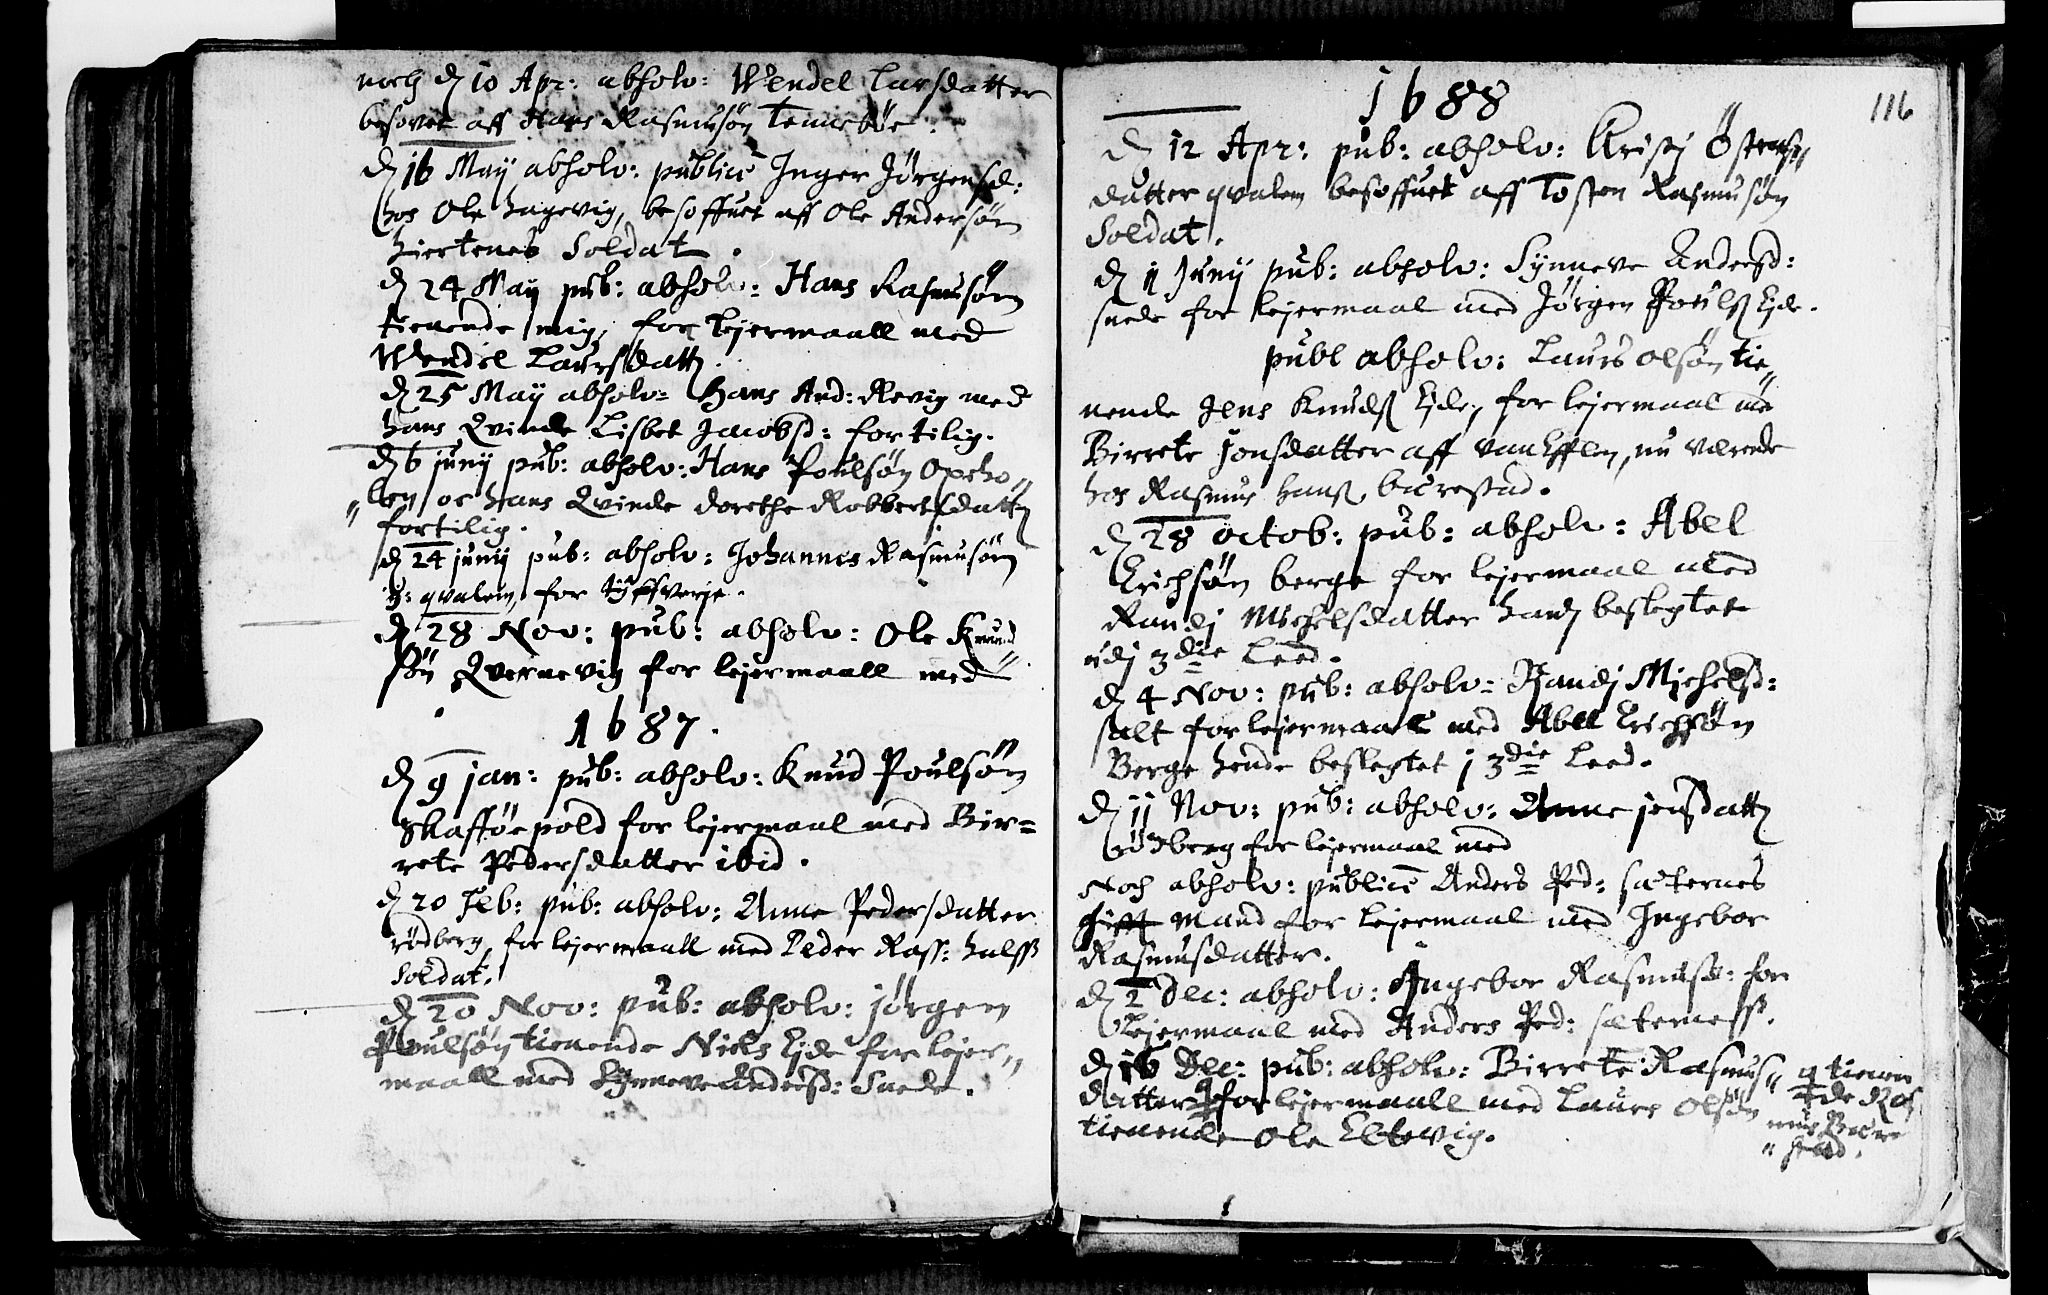 noch d 10 Apr: absolv: Wendel Larsdatter
besovet aff Hans Rasmusøn Tennebøe.
d 16 Maÿ absolv: publicè Inger Jørgensd:
hos Ole hagevig, besoffuet aff Ole Andersøn
hiertenes Soldat.
d 24 Maÿ pub: absolv: Hans Rasmusøn
tienende mig, for lejermaall med
Wendel Laursdatt
d 25 Maÿ absolv: Hans And: Revig med
hans Qvinde Lisbet Jacobsd: for tilig.
d 6 junÿ pub: absolv: Hans Poulsøn
len oc hans Qvinde dorethe Robbertsdatt
for tilig.
d 24 junÿ pub: absolv: Johannes Rasmusøn
qvalem, for
d 28 Nov: pub: absolv: Ole Knud
søn Qvernevig for lejermaall med
1687.
d 9 jan: pub: absolv: Knud Poulsøn
for lejermaal med Bir=
rete Pedersdatter ibid.
d 20 Feb: pub: absolv: Anne Pedersdatter
rødberg, for lejermaall med Peder Rass:
Soldat.
d 20 Nov: pub: absolv: jørgen
Poulsøn tienende Niels Ejde for lejer
maall med Synneve Andersd: Suede.
116
1688
d 12 Apr: pub: absolv: Kristj
datter qvalem besoffuet aff Tosten Rasmusøn
Soldat.
d 11 Junÿ pub: absolv: Synneve Andersd:
suede for lejermaal med Jørgen Pouls Ejde.
publ absolv: Laurs olsøn tie„
nende Jens Knuds Ejde, for lejermaal me
Birrete Jonsdatter aff, nu værende
hos Rasmus hans,
d 28 octob: pub: absolv: Abel
Erichsøn berge for lejermaal med
Randj Michelsdatter hans beslegtet
udj 3die Leed.
d 4 Nov: pub: absolv: Randj Michelsd:
salt for lejermaall med Abel Erichsøn
Berge hende beslegtet j 3die Leed.
d 11 Nov: pub: absolv: Anne jensdatt
rødberg for lejermaal med
Noch absolv: publicè Anders Ped: sæternes
gift mand for lejermaal med Ingebor
Rasmusdatter.
d 2 Dec: absolv: Ingebor Rasmusd: for
Lejermaal med Anders Ped:
d 16 Dec: pub: absolv: Birrete Rasmus„
datter for lejermaall med Laurs Olsøn
tienende Ole Eltevig.
tienen
de Ras
mus
stad.